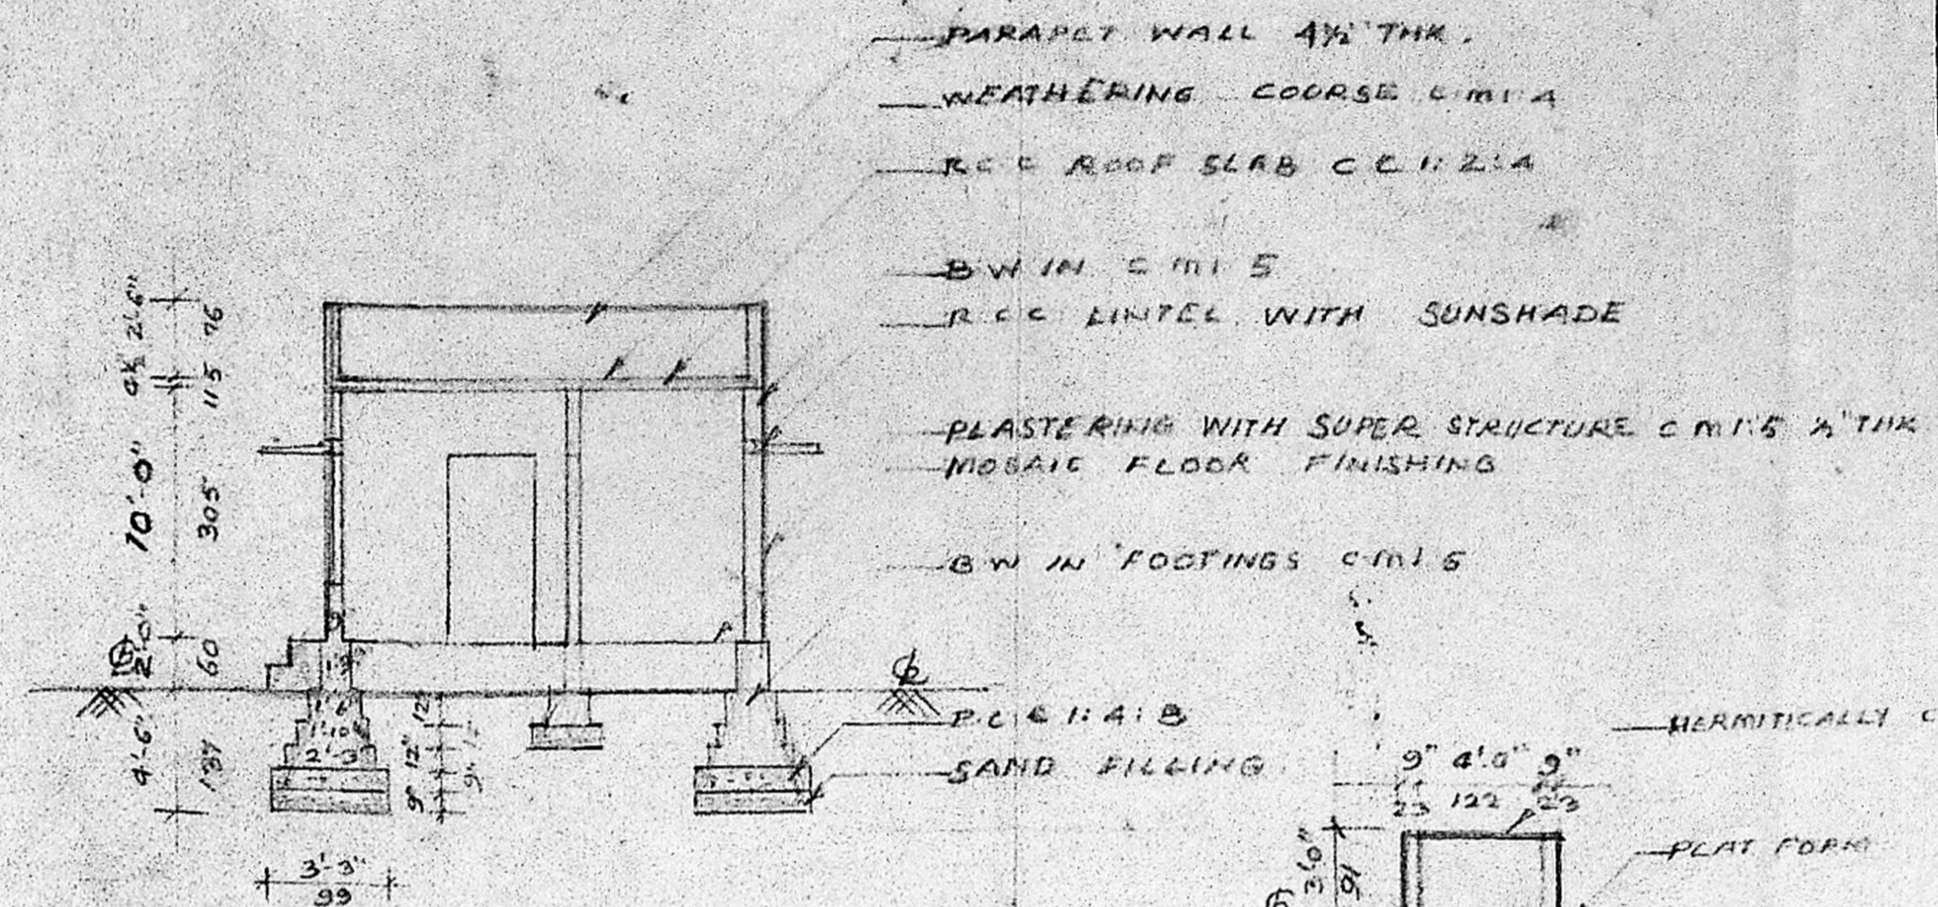 PARAPET WALL 4½" THK.
WEATHERING COURSE C M 1:4
R C C ROOF SLAB C C 1:2:4
B W IN C M 1 5
R C C LINTEL WITH SUNSHADE
PLASTERING WITH SUPER STRUCTURE C M 1:5 ½" THK
MOSAIC FLOOR FINISHING
B W IN FOOTINGS C M 1 5
P C C 1:4:8
SAND FILLING
2'-6" 76
4½" 115
10'-0" 305
2'-0" 60
4'-6" 137
9"
1'-6"
1'-10"
2'-3"
12"
12"
9"
3'-3"
99
HERMITICALLY C
9" 4'.0" 9"
23 122 23
3'.0" 91
PLAT FORM